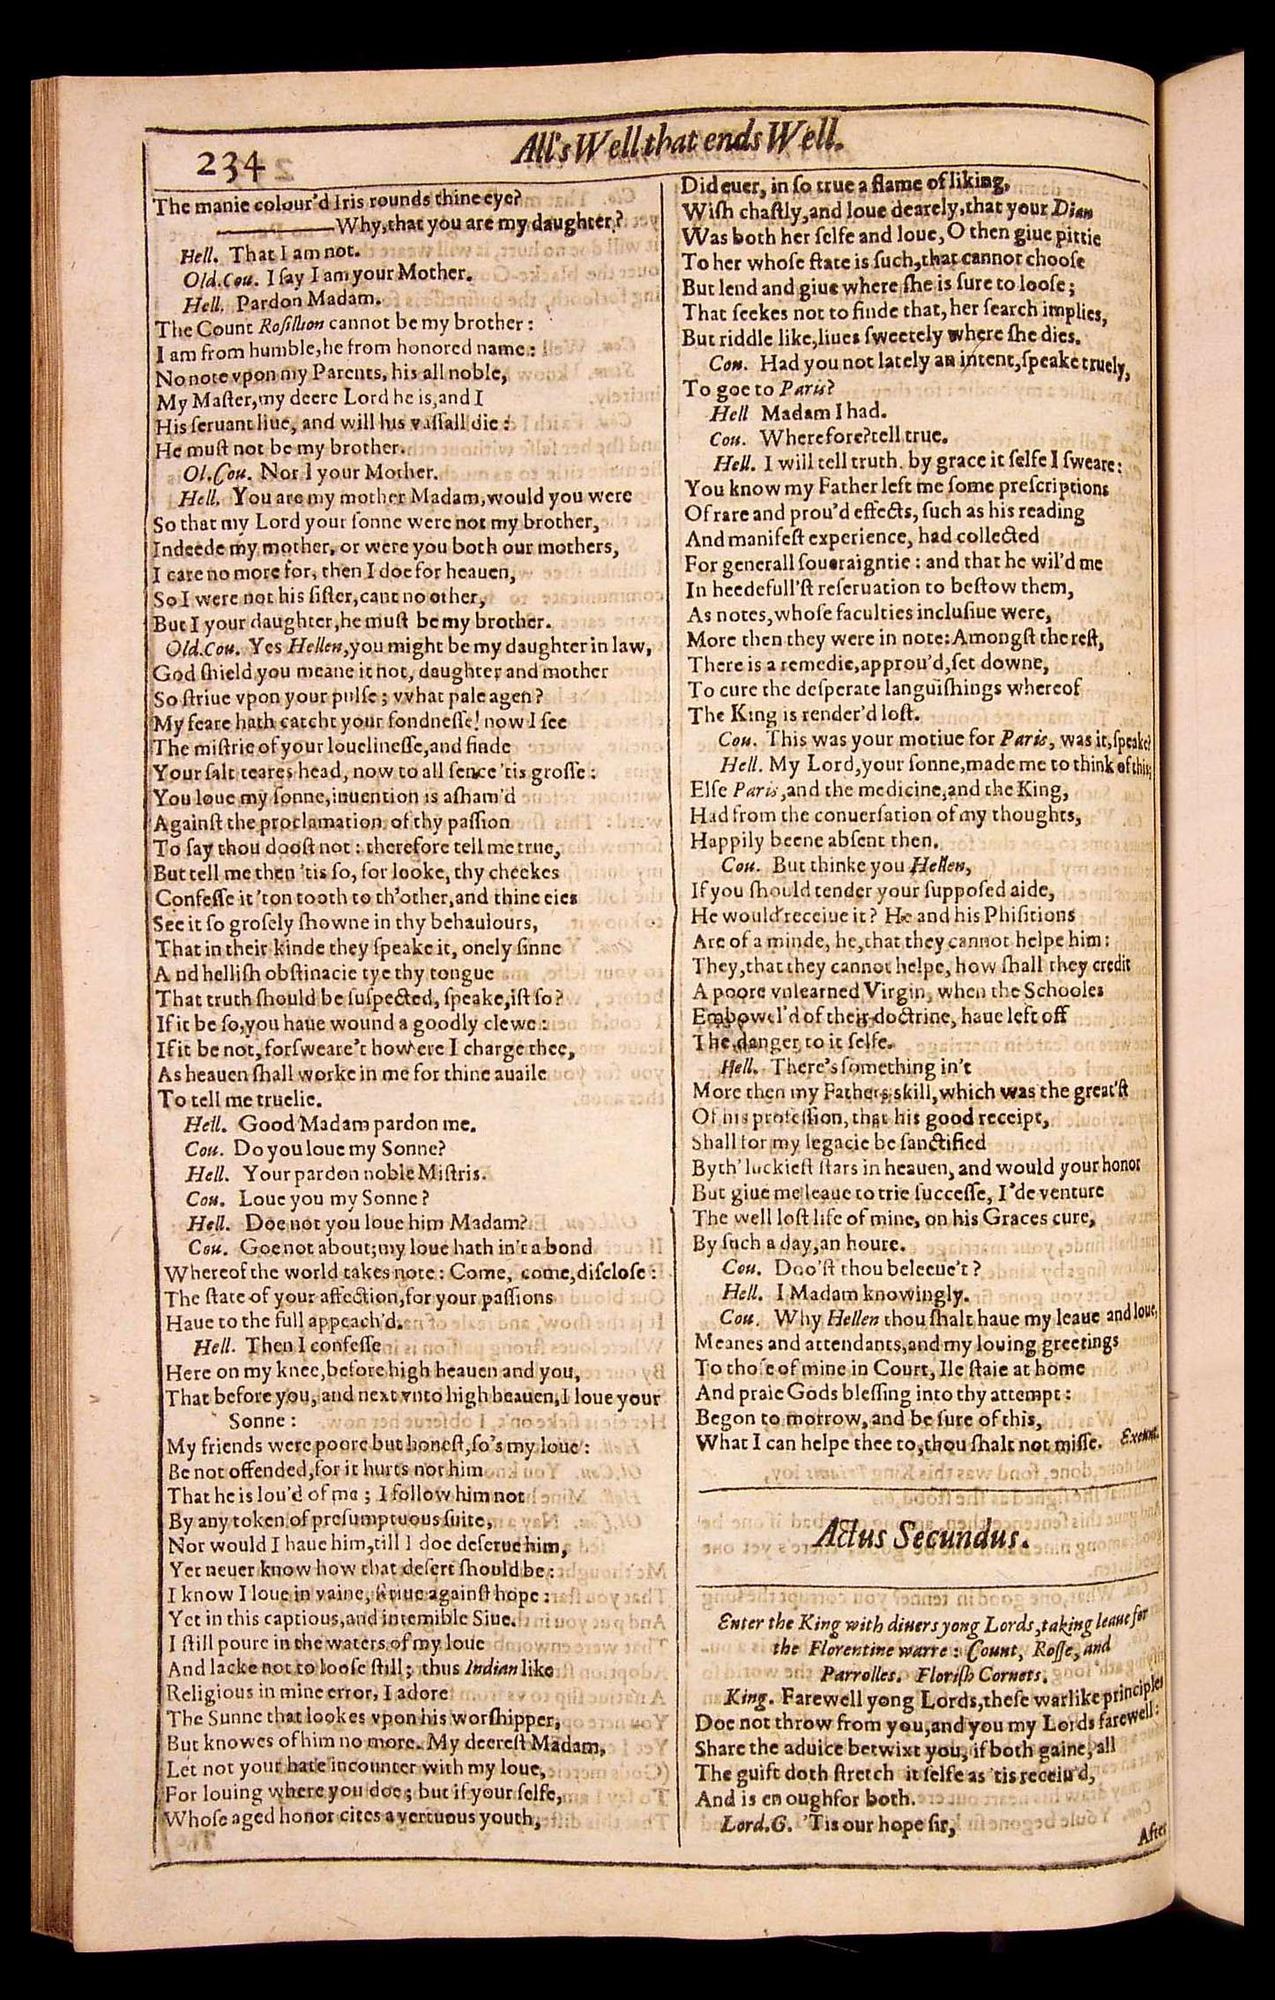 234
All's Well that ends Well.
The manie colour'd Iris rounds thine eye?
———Why, that you are my daughter?
Hell. That I am not.
Old.Cou. I say I am your Mother.
Hell. Pardon Madam.
The Count Rosillion cannot be my brother:
I am from humble, he from honored name:
No note vpon my Parents, his all noble,
My Master, my deere Lord he is, and I
His seruant liue, and will his vassall die:
He must not be my brother.
Ol.Cou. Nor I your Mother.
Hell. You are my mother Madam, would you were
So that my Lord your sonne were not my brother,
Indeede my mother, or were you both our mothers,
I care no more for, then I doe for heauen,
So I were not his sister, cant no other,
But I your daughter, he must be my brother.
Old.Cou. Yes Hellen, you might be my daughter in law,
God shield you meane it not, daughter and mother
So striue vpon your pulse; vvhat pale agen?
My feare hath catcht your fondnesse! now I see
The mistrie of your louelinesse, and finde
Your salt teares head, now to all sence 'tis grosse:
You loue my sonne, inuention is asham'd
Against the proclamation of thy passion
To say thou doost not: therefore tell me true,
But tell me then 'tis so, for looke, thy cheekes
Confesse it 'ton tooth to th'other, and thine eies
See it so grosely showne in thy behauiours,
That in their kinde they speake it, onely sinne
And hellish obstinacie tye thy tongue
That truth should be suspected, speake, ist so?
If it be so, you haue wound a goodly clewe:
If it be not, forsweare't how ere I charge thee,
As heauen shall worke in me for thine auaile
To tell me truelie.
Hell. Good Madam pardon me.
Cou. Do you loue my Sonne?
Hell. Your pardon noble Mistris.
Cou. Loue you my Sonne?
Hell. Doe not you loue him Madam?
Cou. Goe not about; my loue hath in't a bond
Whereof the world takes note: Come, come, disclose:
The state of your affection, for your passions
Haue to the full appeach'd.
Hell. Then I confesse
Here on my knee, before high heauen and you,
That before you, and next vnto high heauen, I loue your
Sonne:
My friends were poore but honest, so's my loue:
Be not offended, for it hurts not him
That he is lou'd of me; I follow him not
By any token of presumptuous suite,
Nor would I haue him, till I doe deserue him,
Yet neuer know how that desert should be:
I know I loue in vaine, striue against hope:
Yet in this captious, and intemible Siue.
I still poure in the waters of my loue
And lacke not to loose still; thus Indian like
Religious in mine error, I adore
The Sunne that lookes vpon his worshipper,
But knowes of him no more. My deerest Madam,
Let not your hate incounter with my loue,
For louing where you doe; but if your selfe,
Whose aged honor cites a vertuous youth,
Did euer, in so true a flame of liking,
Wish chastly, and loue dearely, that your Dian
Was both her selfe and loue, O then giue pittie
To her whose state is such, that cannot choose
But lend and giue where she is sure to loose;
That seekes not to finde that, her search implies,
But riddle like, liues sweetely where she dies.
Cou. Had you not lately an intent, speake truely,
To goe to Paris?
Hell Madam I had.
Cou. Wherefore? tell true.
Hell. I will tell truth. by grace it selfe I sweare:
You know my Father left me some prescriptions
Of rare and prou'd effects, such as his reading
And manifest experience, had collected
For generall soueraigntie: and that he wil'd me
In heedefull'st reseruation to bestow them,
As notes, whose faculties inclusiue were,
More then they were in note: Amongst the rest,
There is a remedie, approu'd, set downe,
To cure the desperate languishings whereof
The King is render'd lost.
Cou. This was your motiue for Paris, was it, speake?
Hell. My Lord, your sonne, made me to think of this;
Else Paris, and the medicine, and the King,
Had from the conuersation of my thoughts,
Happily beene absent then.
Cou. But thinke you Hellen,
If you should tender your supposed aide,
He would receiue it? He and his Phisitions
Are of a minde, he, that they cannot helpe him:
They, that they cannot helpe, how shall they credit
A poore vnlearned Virgin, when the Schooles
Embowel'd of their doctrine, haue left off
The danger to it selfe.
Hell. There's something in't
More then my Fathers skill, which was the great'st
Of his profession, that his good receipt,
Shall for my legacie be sanctified
Byth' luckiest stars in heauen, and would your honor
But giue me leaue to trie successe, I'de venture
The well lost life of mine, on his Graces cure,
By such a day, an houre.
Cou. Doo'st thou beleeue't?
Hell. I Madam knowingly.
Cou. Why Hellen thou shalt haue my leaue and loue,
Meanes and attendants, and my louing greetings
To those of mine in Court, Ile staie at home
And praie Gods blessing into thy attempt:
Begon to morrow, and be sure of this,
What I can helpe thee to, thou shalt not misse. Exeunt.
Actus Secundus.
Enter the King with diuers yong Lords, taking leaue for
the Florentine warre: Count, Rosse, and
Parrolles. Florish Cornets.
King. Farewell yong Lords, these warlike principles
Doe not throw from you, and you my Lords farewell:
Share the aduice betwixt you, if both gaine, all
The guift doth stretch it selfe as 'tis receiu'd,
And is en oughfor both.
Lord.G. 'Tis our hope sir,
After